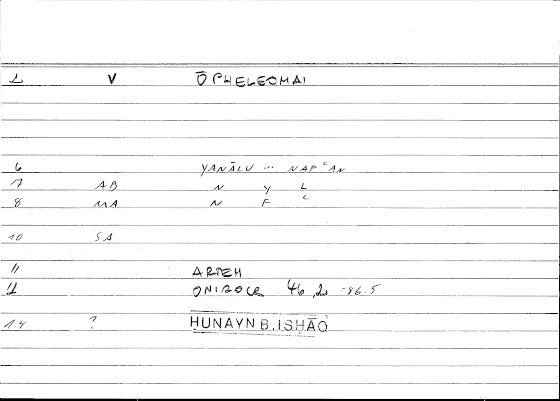 1 V ŌPHELEOMAI
6 YANĀLU ... NAFʿAN
7 AB N Y L
8 MA N F ʿ
10 SA
11 ARTEM
12 ONIROCR 46,2 -86.5
14 ? ḤUNAYN B.ISḤĀQ